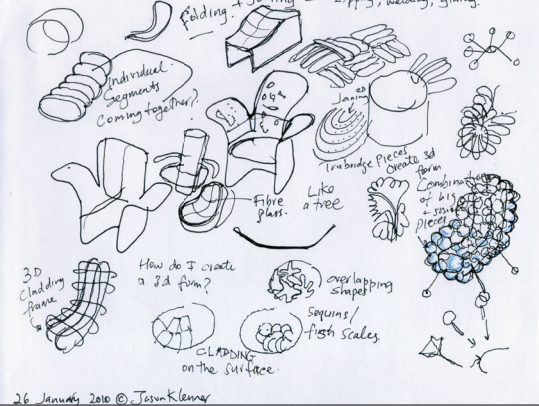 Folding + Joining zipping, welding, gluing.
Individual
Segments
Coming together?
2D
Joining
Trubridge Pieces
Create 3d
form
Combination
of big
+ small
pieces
Fibre
glass.
Like
a tree
3D
Cladding
frame
How do I create
a 3d form?
overlapping
shapes
Sequins/
fish scales
CLADDING
on the surface.
26 January 2010 © Jasun Klenner